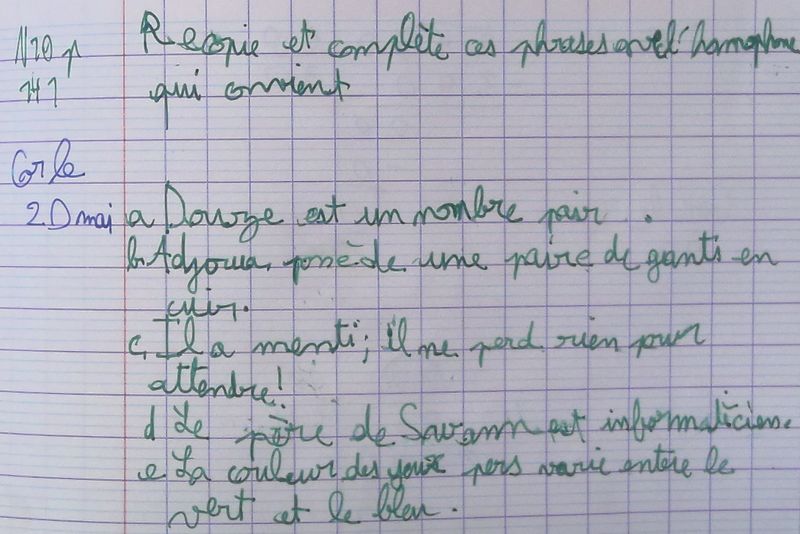 N20 p Recopie et complète ces phrases avec l'homophone
141 qui convient
Cor le
20 mai a Douze est un nombre pair.
b. Adjoua, possède une paire de gants en
cuir.
c, Il a menti; il ne perd rien pour
attendre!
d Le père de Savann est informaticien.
e La couleur des yeux pers varie entre le
vert et le bleu.